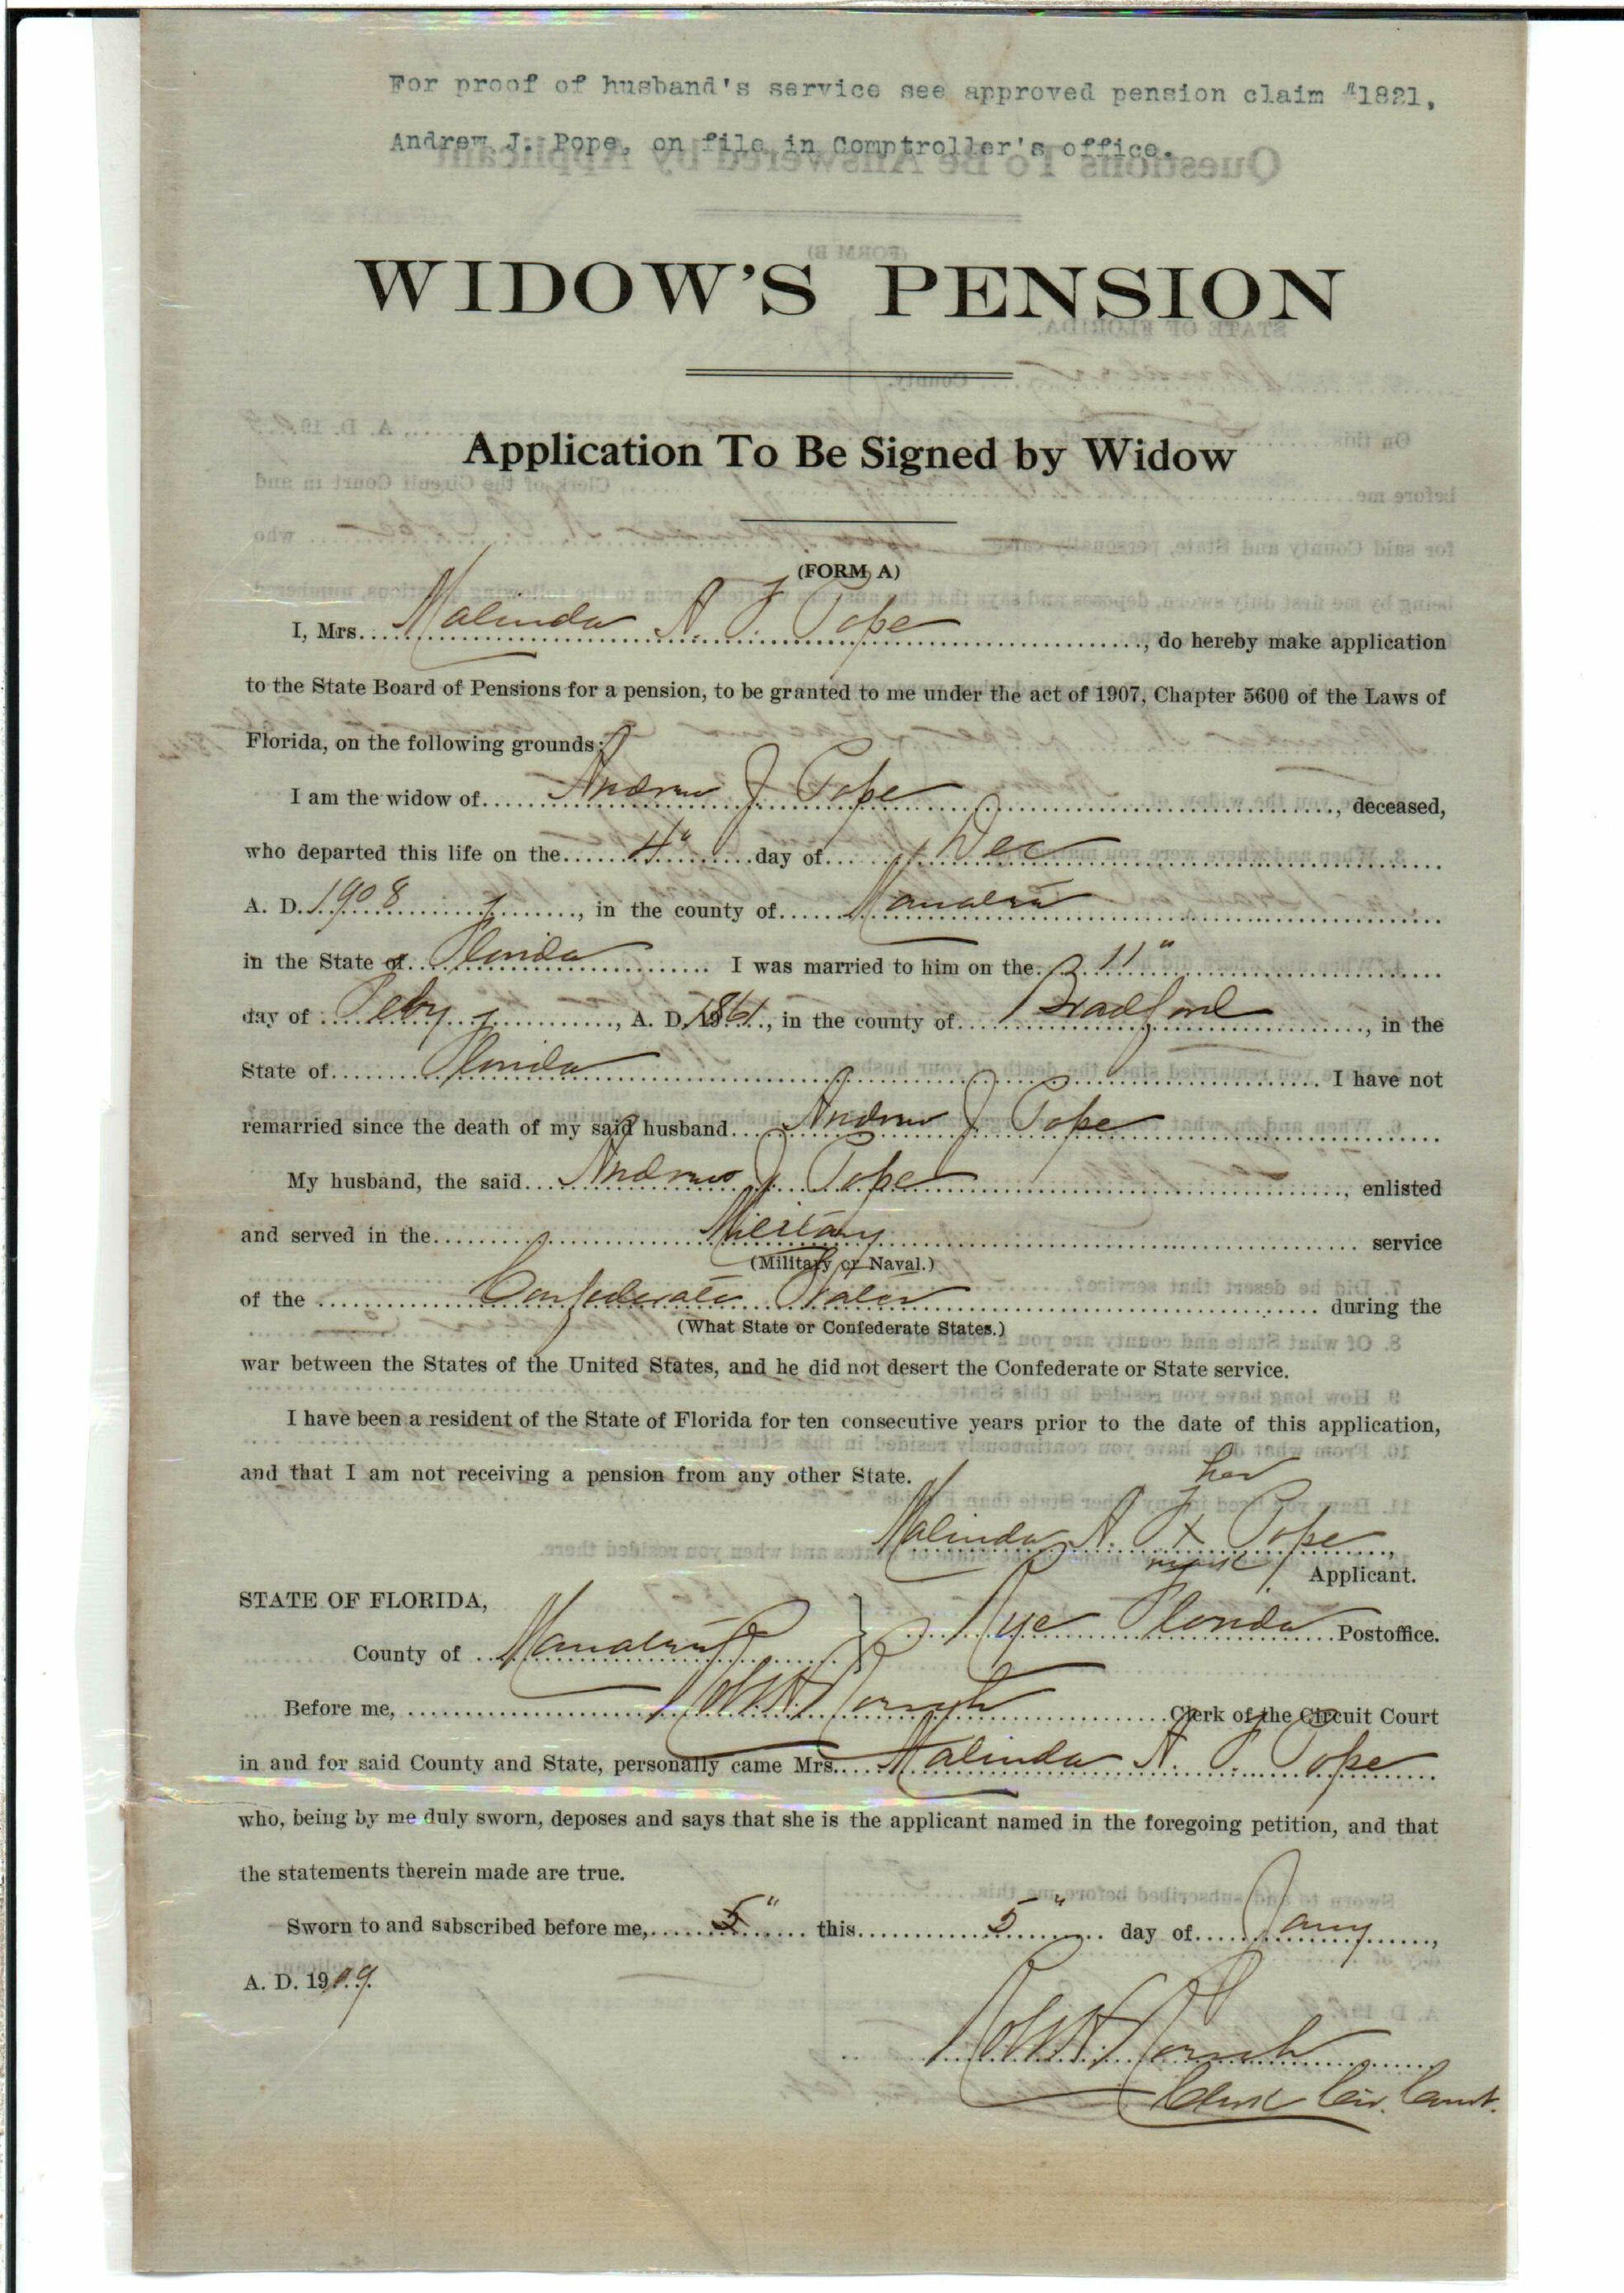 For proof of husband's service see approved pension claim #1821,
Andrew J. Pope, on file in Comptroller's office.
WIDOW'S PENSION
Application To Be Signed by Widow
(FORM A)
I, Mrs. Malinda A. F. Pope, do hereby make application
to the State Board of Pensions for a pension, to be granted to me under the act of 1907, Chapter 5600 of the Laws of
Florida, on the following grounds:
I am the widow of Andrew J Pope, deceased,
who departed this life on the 4" day of Dec
A. D. 1908, in the county of Manatee
in the State of Florida I was married to him on the 11"
day of Feby, A. D. 1861, in the county of Bradford, in the
State of Florida I have not
remarried since the death of my said husband Andrew J Pope
My husband, the said Andrew J. Pope, enlisted
and served in the Military service
(Military or Naval.)
of the Confederate States during the
(What State or Confederate States.)
war between the States of the United States, and he did not desert the Confederate or State service.
I have been a resident of the State of Florida for ten consecutive years prior to the date of this application,
and that I am not receiving a pension from any other State.
her
Malinda A. F. X Pope,
mark
Applicant.
STATE OF FLORIDA,
County of Manatee } Rye Florida Postoffice.
Before me, Robt H Clerk of the Circuit Court
in and for said County and State, personally came Mrs. Malinda A. F. Pope
who, being by me duly sworn, deposes and says that she is the applicant named in the foregoing petition, and that
the statements therein made are true.
Sworn to and subscribed before me, 5" this 5" day of Jany,
A. D. 1909.
Robt H
Clerk Cir. Court.